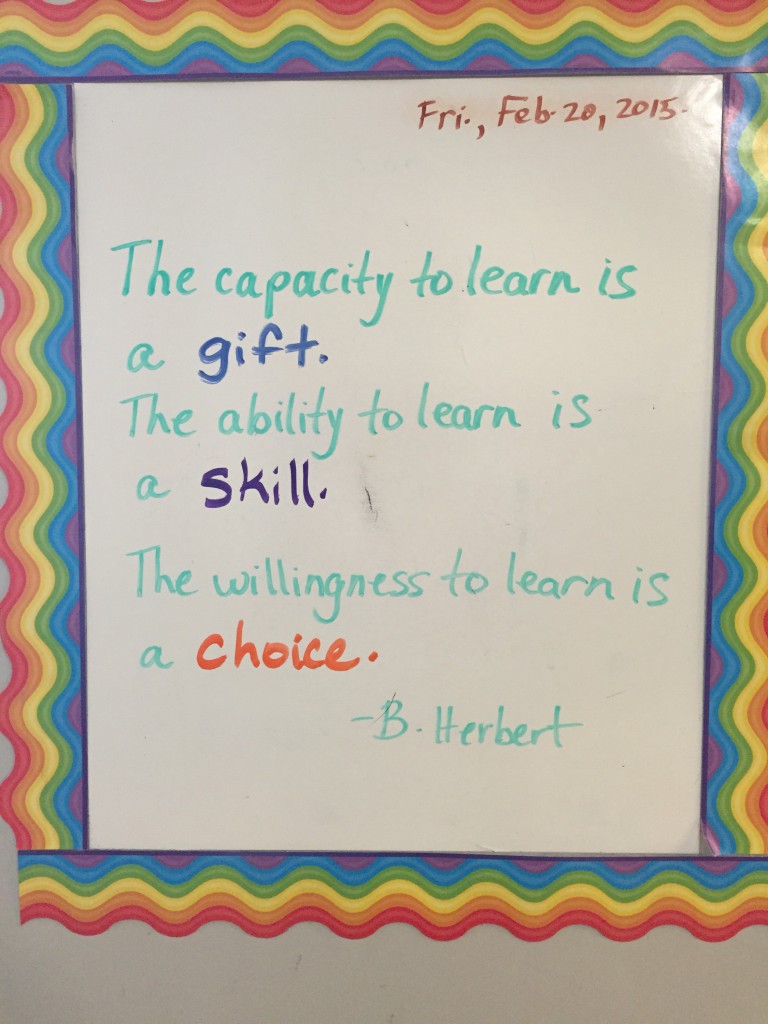 Fri., Feb. 20, 2015.
The capacity to learn is
a gift.
The ability to learn is
a skill.
The willingness to learn is
a choice.
-B. Herbert